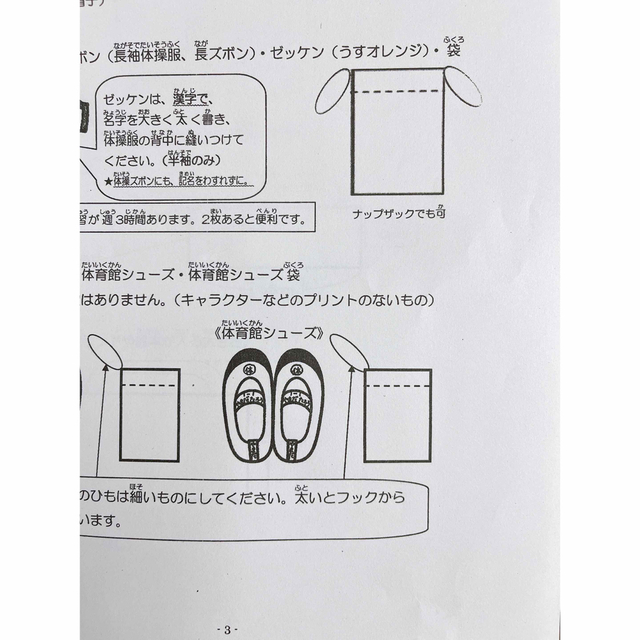 ボン(長袖体操服、長ズボン)・ゼッケン(うすオレンジ)・袋
ゼッケンは、漢字で、
名字を大きく太く書き、
体操服の背中に縫いつけて
ください。(半袖のみ)
★体操ズボンにも、記名をわすれずに。
ナップザックでも可
習が週3時間あります。2枚あると便利です。
体育館シューズ・体育館シューズ袋
はありません。(キャラクターなどのプリントのないもの)
《体育館シューズ》
体 体
のひもは細いものにしてください。太いとフックから
います。
- 3 -